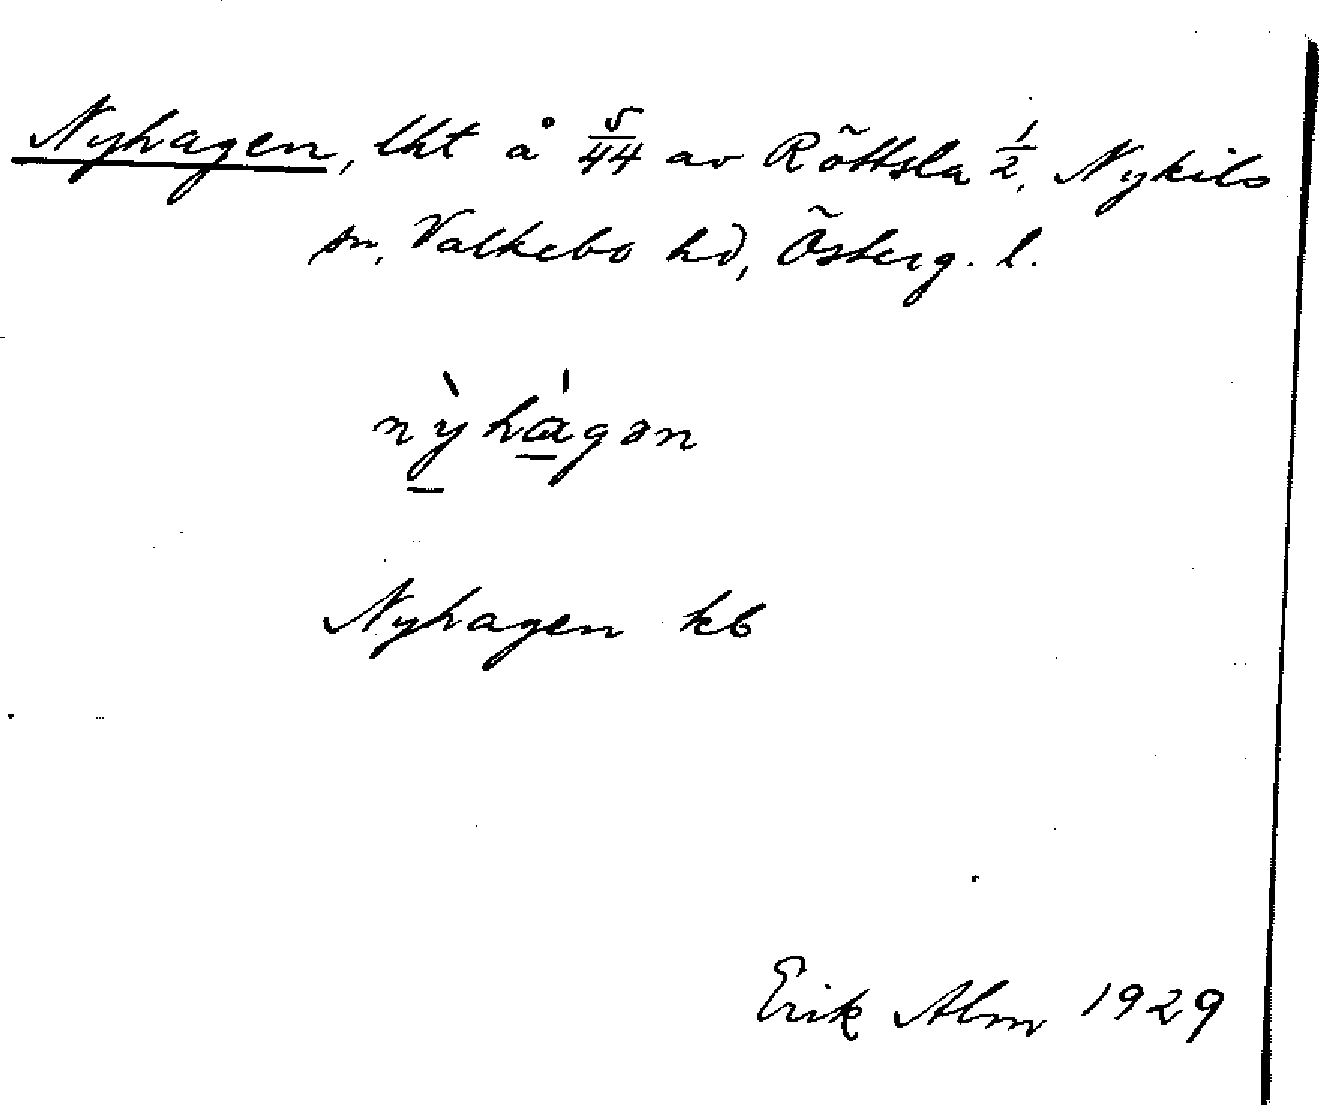 Nyhagen, lht å 5/44 av Röttsla 1/2, Nykils
sn, Valkebo hd, Österg. l.
nỳhágən
Nyhagen kb
Erik Alm 1929